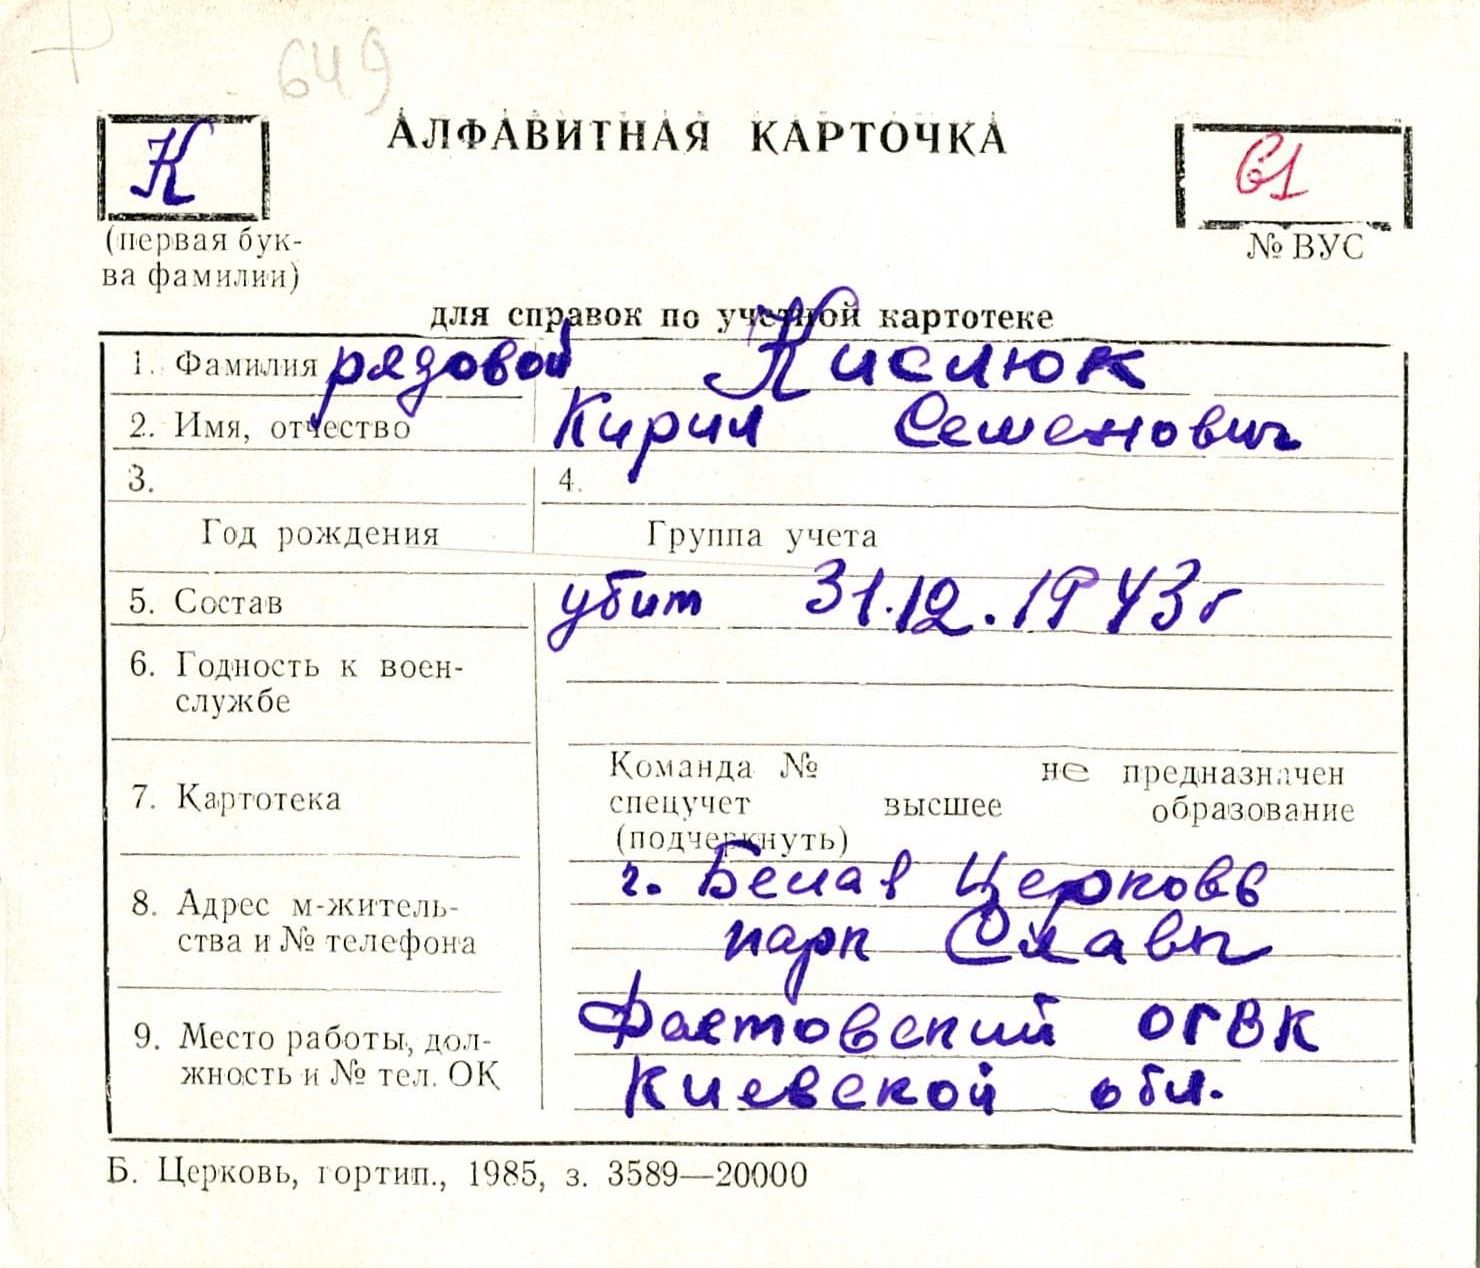 649
АЛФАВИТНАЯ КАРТОЧКА
К
61
(первая бук-
ва фамилии)
№ ВУС
для справок по учетной картотеке
1. Фамилия рядовой Кислюк
2. Имя, отчество Кирил Семенович
3. 4.
Год рождения Группа учета
5. Состав убит 31.12.1943г
6. Годность к воен-
службе
Команда № не предназначен
7. Картотека спецучет высшее образование
(подчеркнуть)
г. Белая Церковь
8. Адрес м-житель-
ства и № телефона парк Славы
Фастовский ОГВК
9. Место работы, дол-
жность и № тел. ОК Киевской обл.
Б. Церковь, гортип., 1985, з. 3589—20000